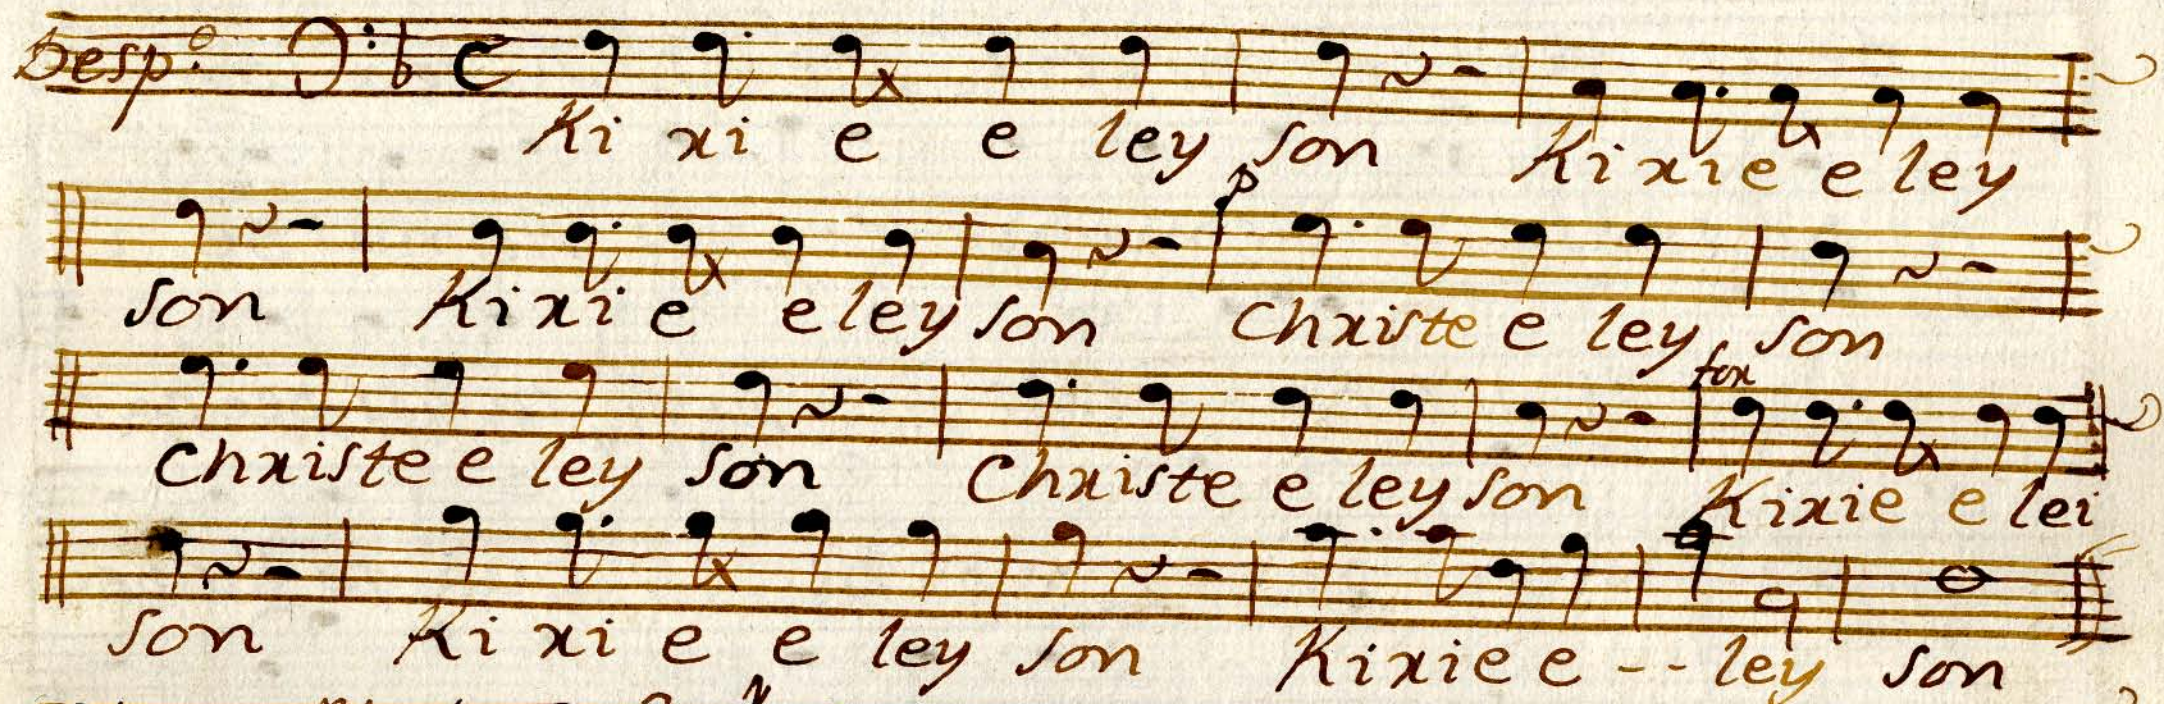 Desp.º Ki xi e e ley son Kixie e ley
son Kixi e eley son p Christe e ley son
Christe e ley son Christe e ley son for Kixie e lei
son Ki xi e e ley son Kixie e -- ley son